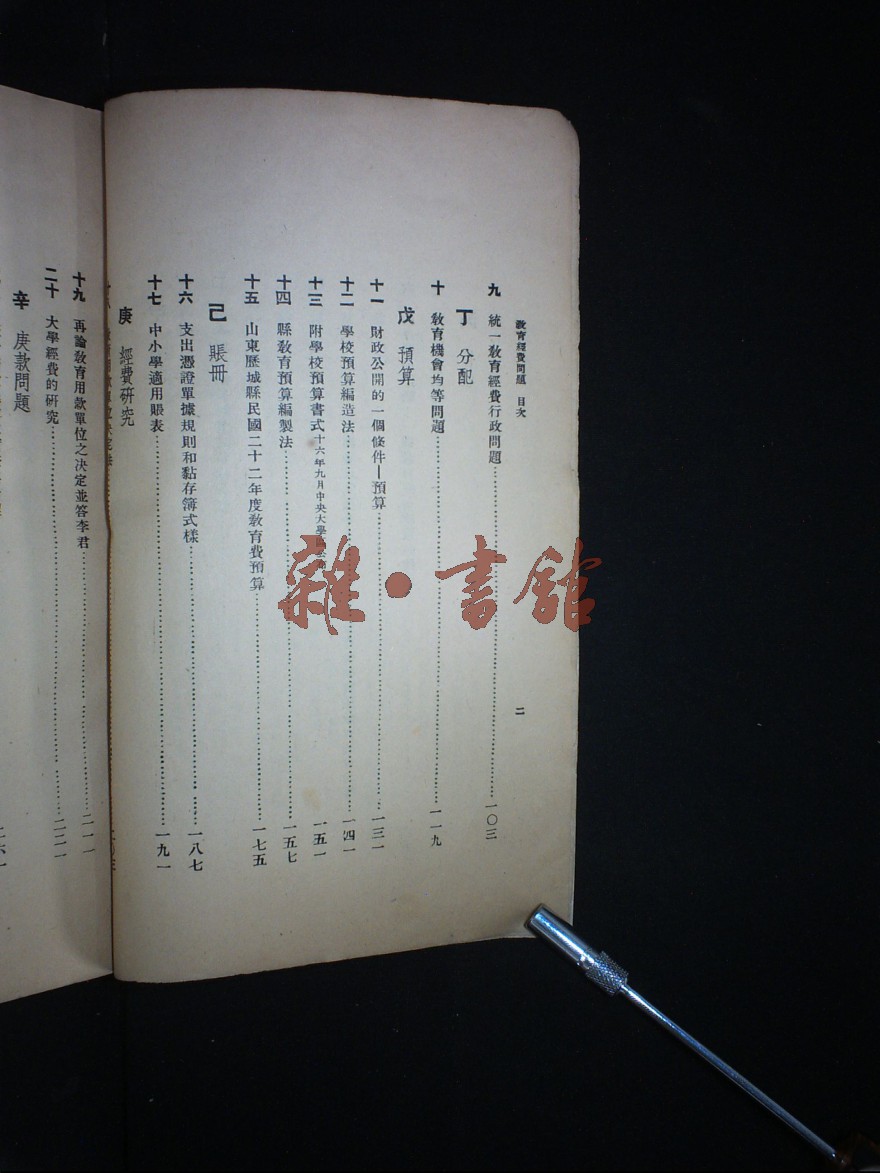 教育經費問題 目次
二
九 統一教育經費行政問題 一〇三
丁 分配
十 教育機會均等問題 一一九
戊 預算
十一 財政公開的一個條件—預算 一三一
十二 學校預算編造法 一四一
十三 附學校預算書式 十六年九月中央大學 一五一
十四 縣教育預算編製法 一五七
十五 山東歷城縣民國二十二年度教育費預算 一七五
己 賬冊
十六 支出憑證單據規則和黏存簿式樣 一八七
十七 中小學適用賬表 一九一
庚 經費研究
十九 再論教育用款單位之決定並答李君 二一一
二十 大學經費的研究 二二一
辛 庚款問題
雜·書館